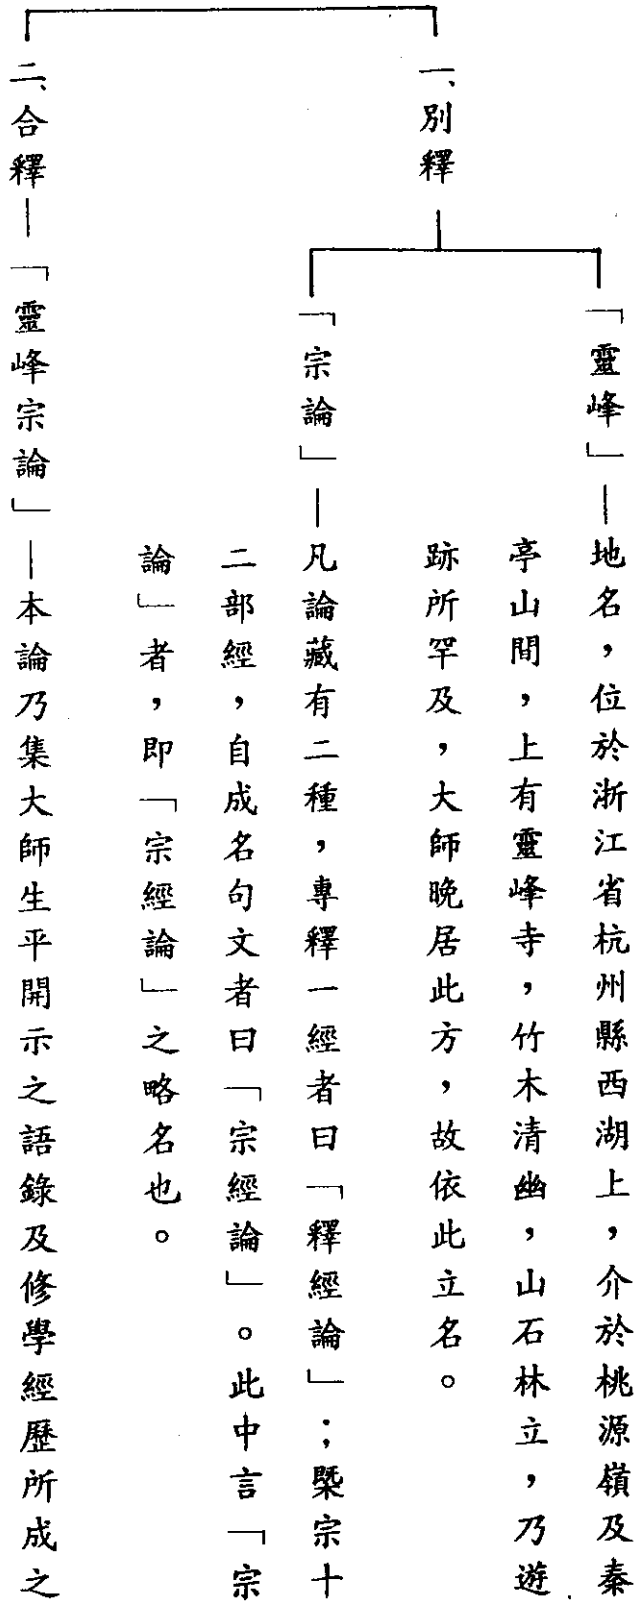 一、別釋
「靈峰」—地名，位於浙江省杭州縣西湖上，介於桃源嶺及秦
亭山間，上有靈峰寺，竹木清幽，山石林立，乃遊
跡所罕及，大師晚居此方，故依此立名。
「宗論」—凡論藏有二種，專釋一經者曰「釋經論」；槩宗十
二部經，自成名句文者曰「宗經論」。此中言「宗
論」者，即「宗經論」之略名也。
二、合釋—「靈峰宗論」—本論乃集大師生平開示之語錄及修學經歷所成之